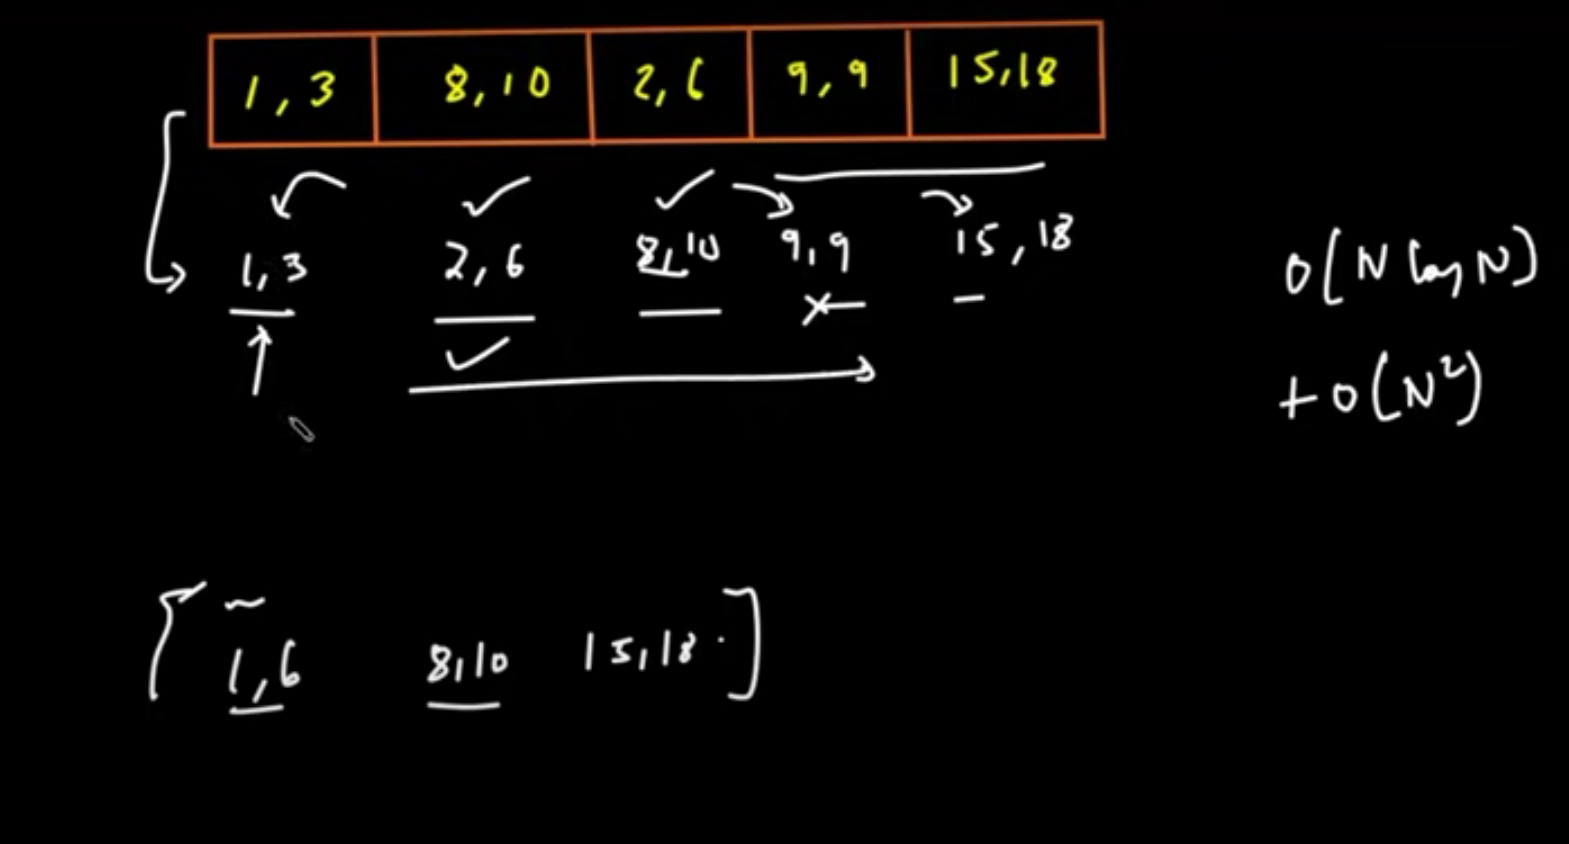 1,3 8,10 2,6 9,9 15,18
1,3 2,6 8,10 9,9 15,18
O(N log N)
+ O(N²)
[1,6 8,10 15,18.]